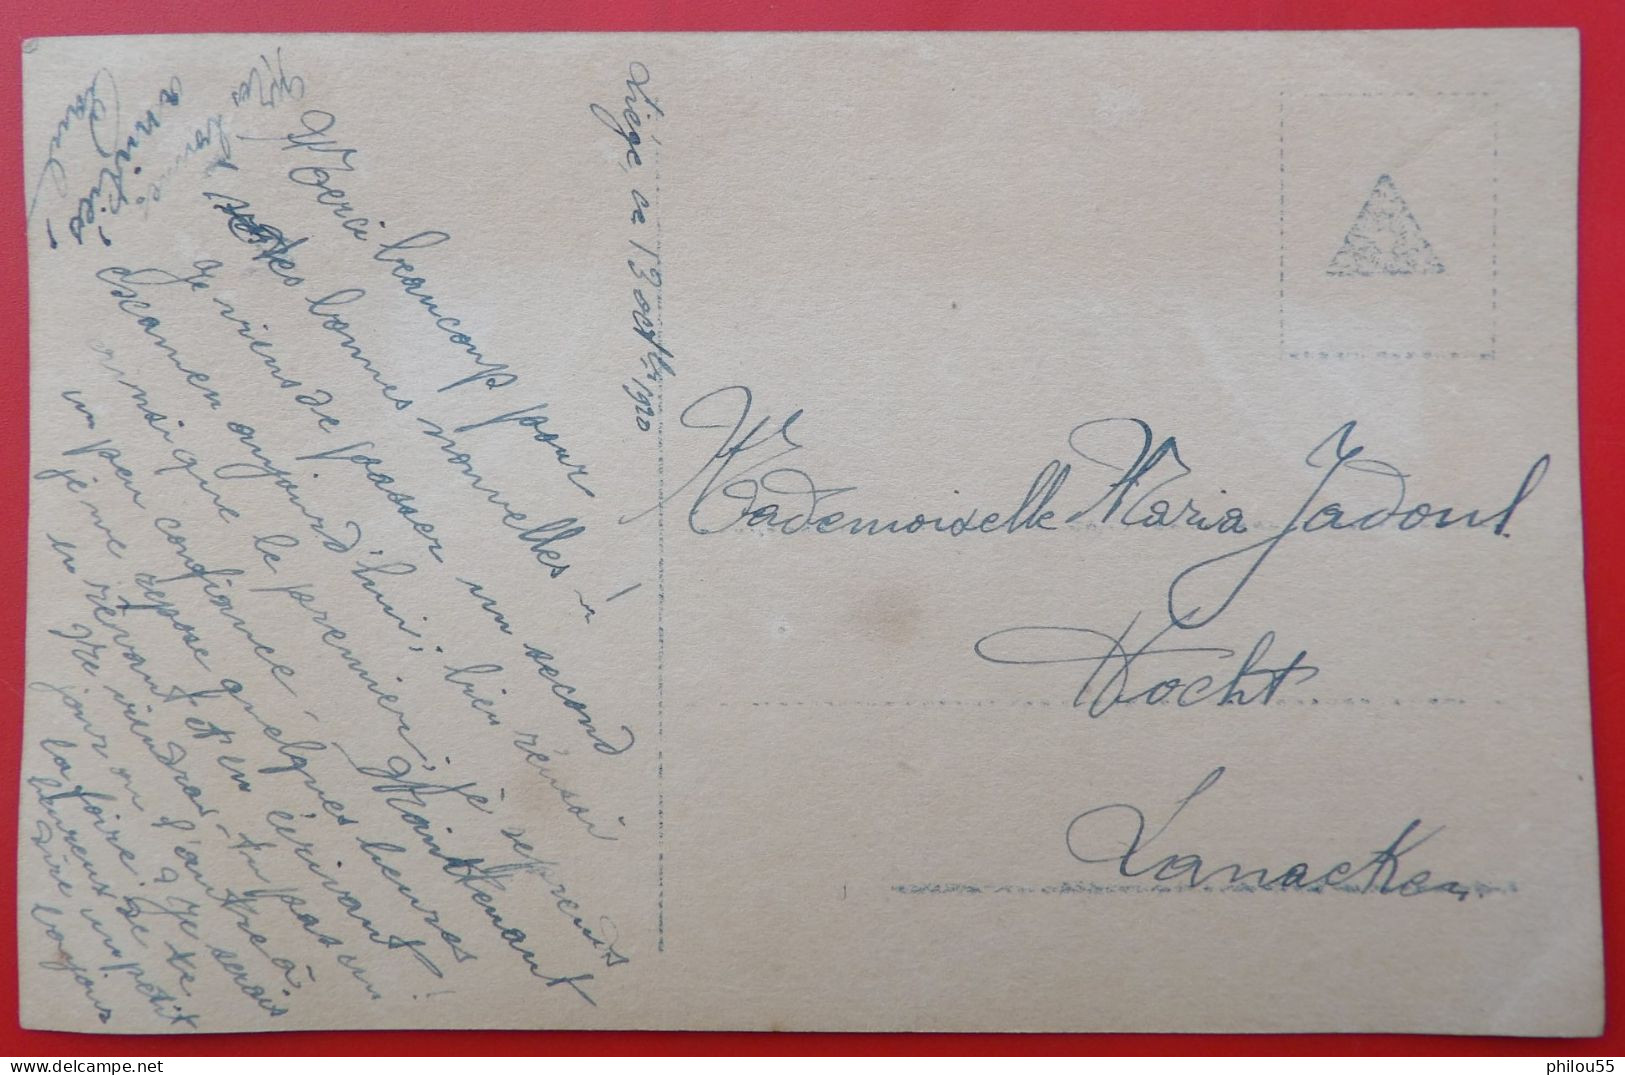 Liège, ce 13 octbre 1920
Merci beaucoup pour
tes bonnes nouvelles !
Je viens de passer un second
examen aujourd'hui, bien réussi
ainsi que le premier; je reprends
un peu confiance. Maintenant
je me repose quelques heures
en rêvant et en t'écrivant !
Ne viendras-tu pas un
jour ou l'autre à
la foire. Je serais
heureux de te
dire un petit
bonjour
amitiés
Mademoiselle Maria Jadoul.
Vocht
Lanaeken.
philou55